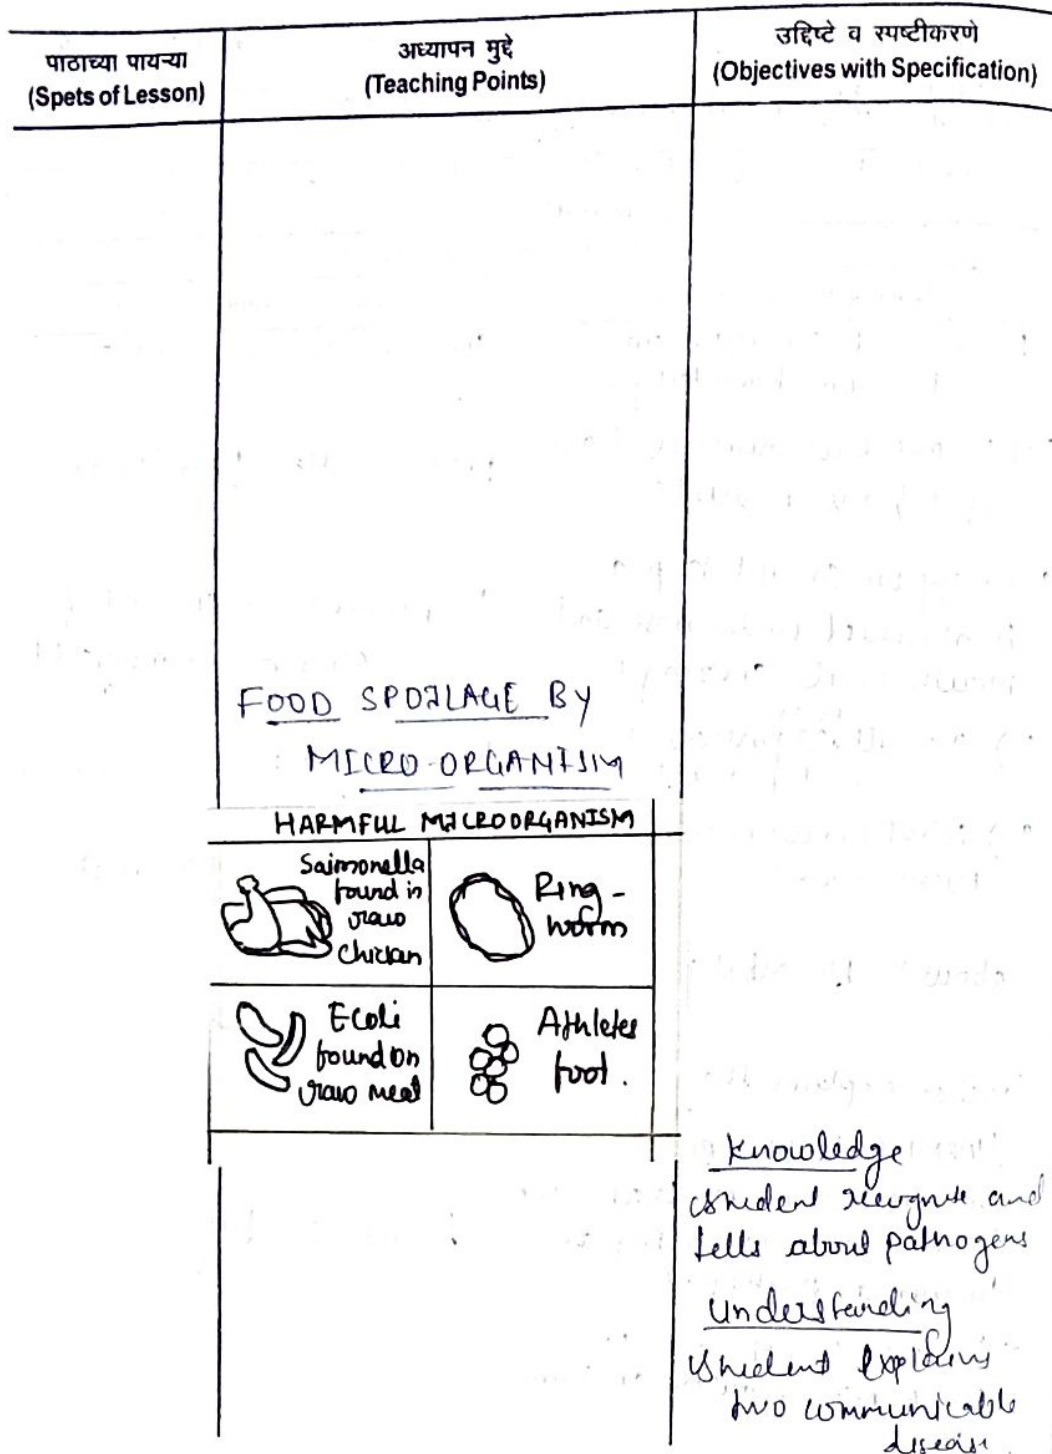 पाठाच्या पायऱ्या
(Spets of Lesson)
अध्यापन मुद्दे
(Teaching Points)
उद्दिष्टे व स्पष्टीकरणे
(Objectives with Specification)
FOOD SPOILAGE BY
MICRO-ORGANISM
HARMFUL MICROORGANISM
Saimonella
found in
raw
chicken
Ring-
worm
Ecoli
found on
raw meat
Athletes
foot.
Knowledge
student recognise and
tells about pathogens
Understanding
student explains
two communicable
disease